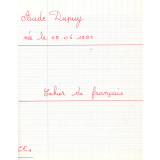 Aude Dupuy
née le 08.06 1992
Cahier de français
CE1